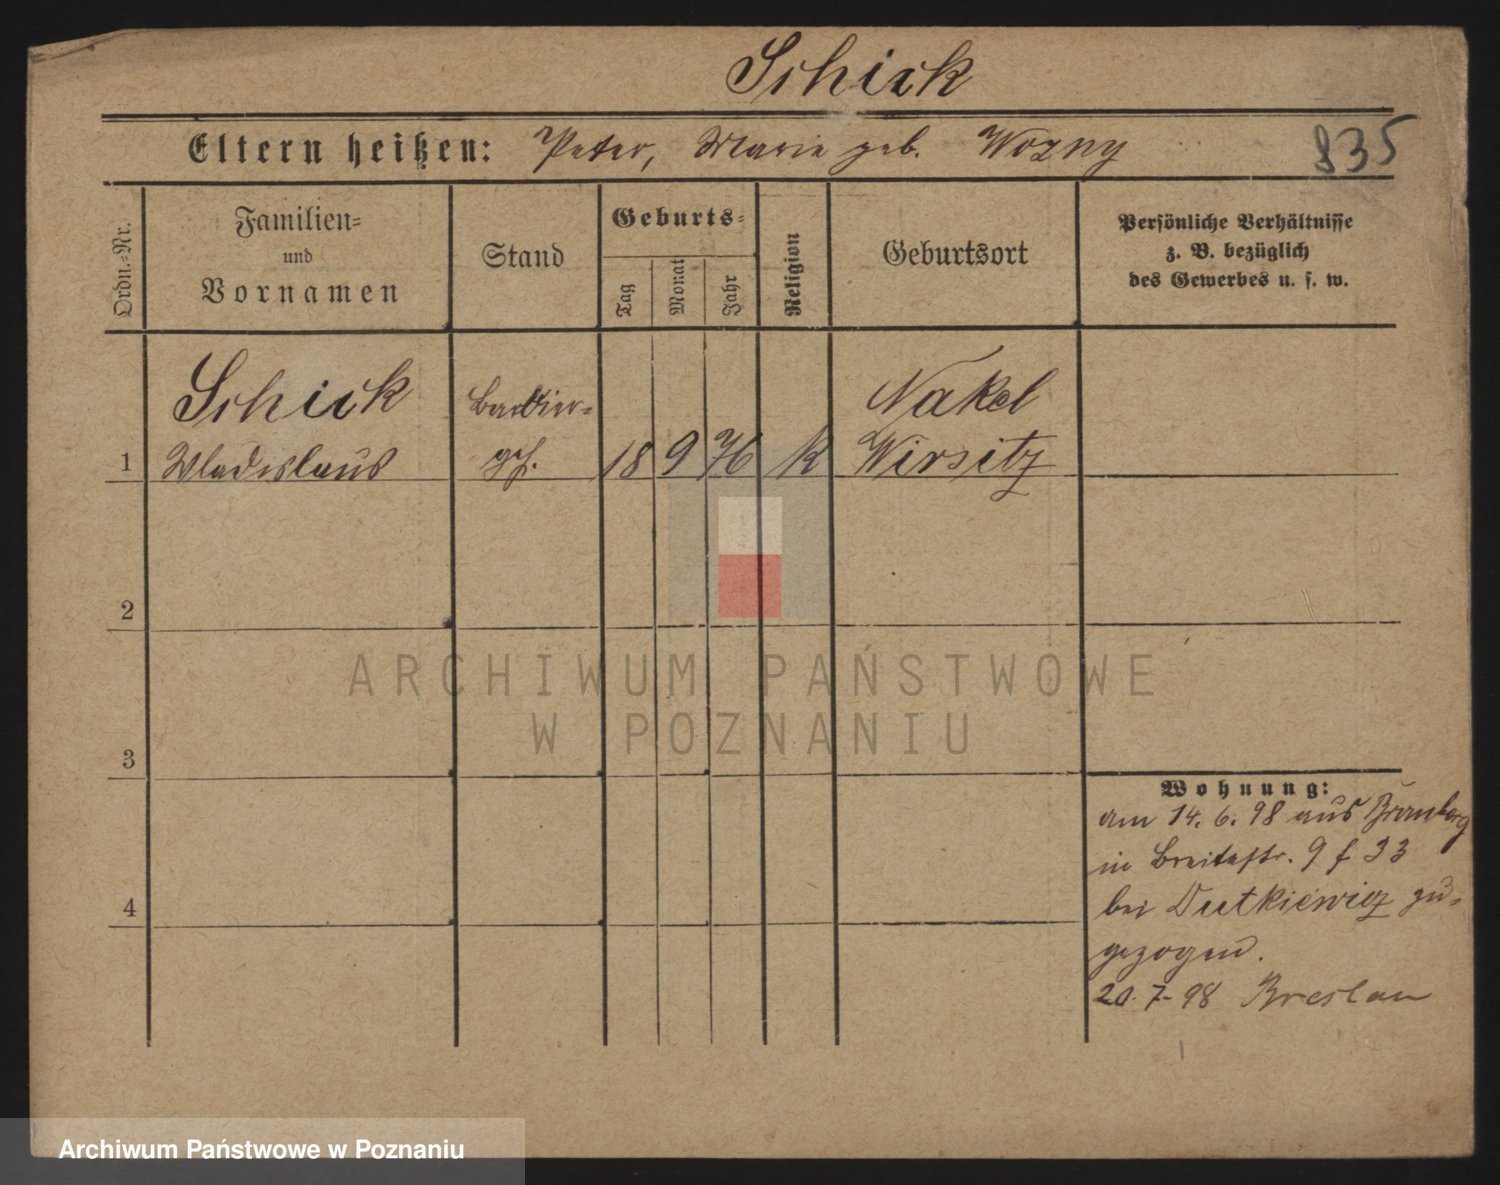 Schick
Eltern heißen: Peter, Marie geb. Wozny
835
Ordn.-Nr.
Familien-
und
Vornamen
Stand
Geburts-
Tag
Monat
Jahr
Religion
Geburtsort
Persönliche Verhältnisse
z. B. bezüglich
des Gewerbes u. s. w.
Schick
Wladislaus
Barbier-
geh.
1
18 9 76 K
Nakel
Wirsitz
2
ARCHIWUM PAŃSTWOWE
W POZNANIU
3
Wohnung:
am 14. 6. 98 aus Bromberg
in Breitestr. 9 f 33
4
bei Dutkiewicz zu-
gezogen.
20. 7. 98 Breslau
Archiwum Państwowe w Poznaniu